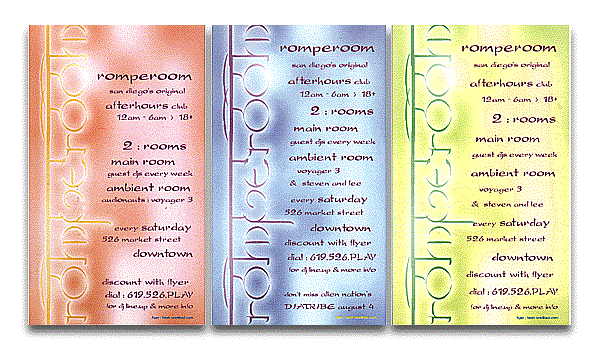 romperoom
romperoom
san diego's original
afterhours club
12am - 6am > 18+
2 : rooms
main room
guest djs every week
ambient room
audionauts : voyager 3
every saturday
526 market street
downtown
discount with flyer
dial : 619.526.PLAY
for dj lineup & more info
romperoom
romperoom
san diego's original
afterhours club
12am - 6am > 18+
2 : rooms
main room
guest djs every week
ambient room
voyager 3
& steven and lee
every saturday
526 market street
downtown
discount with flyer
dial : 619.526.PLAY
for dj lineup & more info
don't miss alien nation's
DIATRIBE august 4
romperoom
romperoom
san diego's original
afterhours club
12am - 6am > 18+
2 : rooms
main room
guest djs every week
ambient room
voyager 3
& steven and lee
every saturday
526 market street
downtown
discount with flyer
dial : 619.526.PLAY
for dj lineup & more info